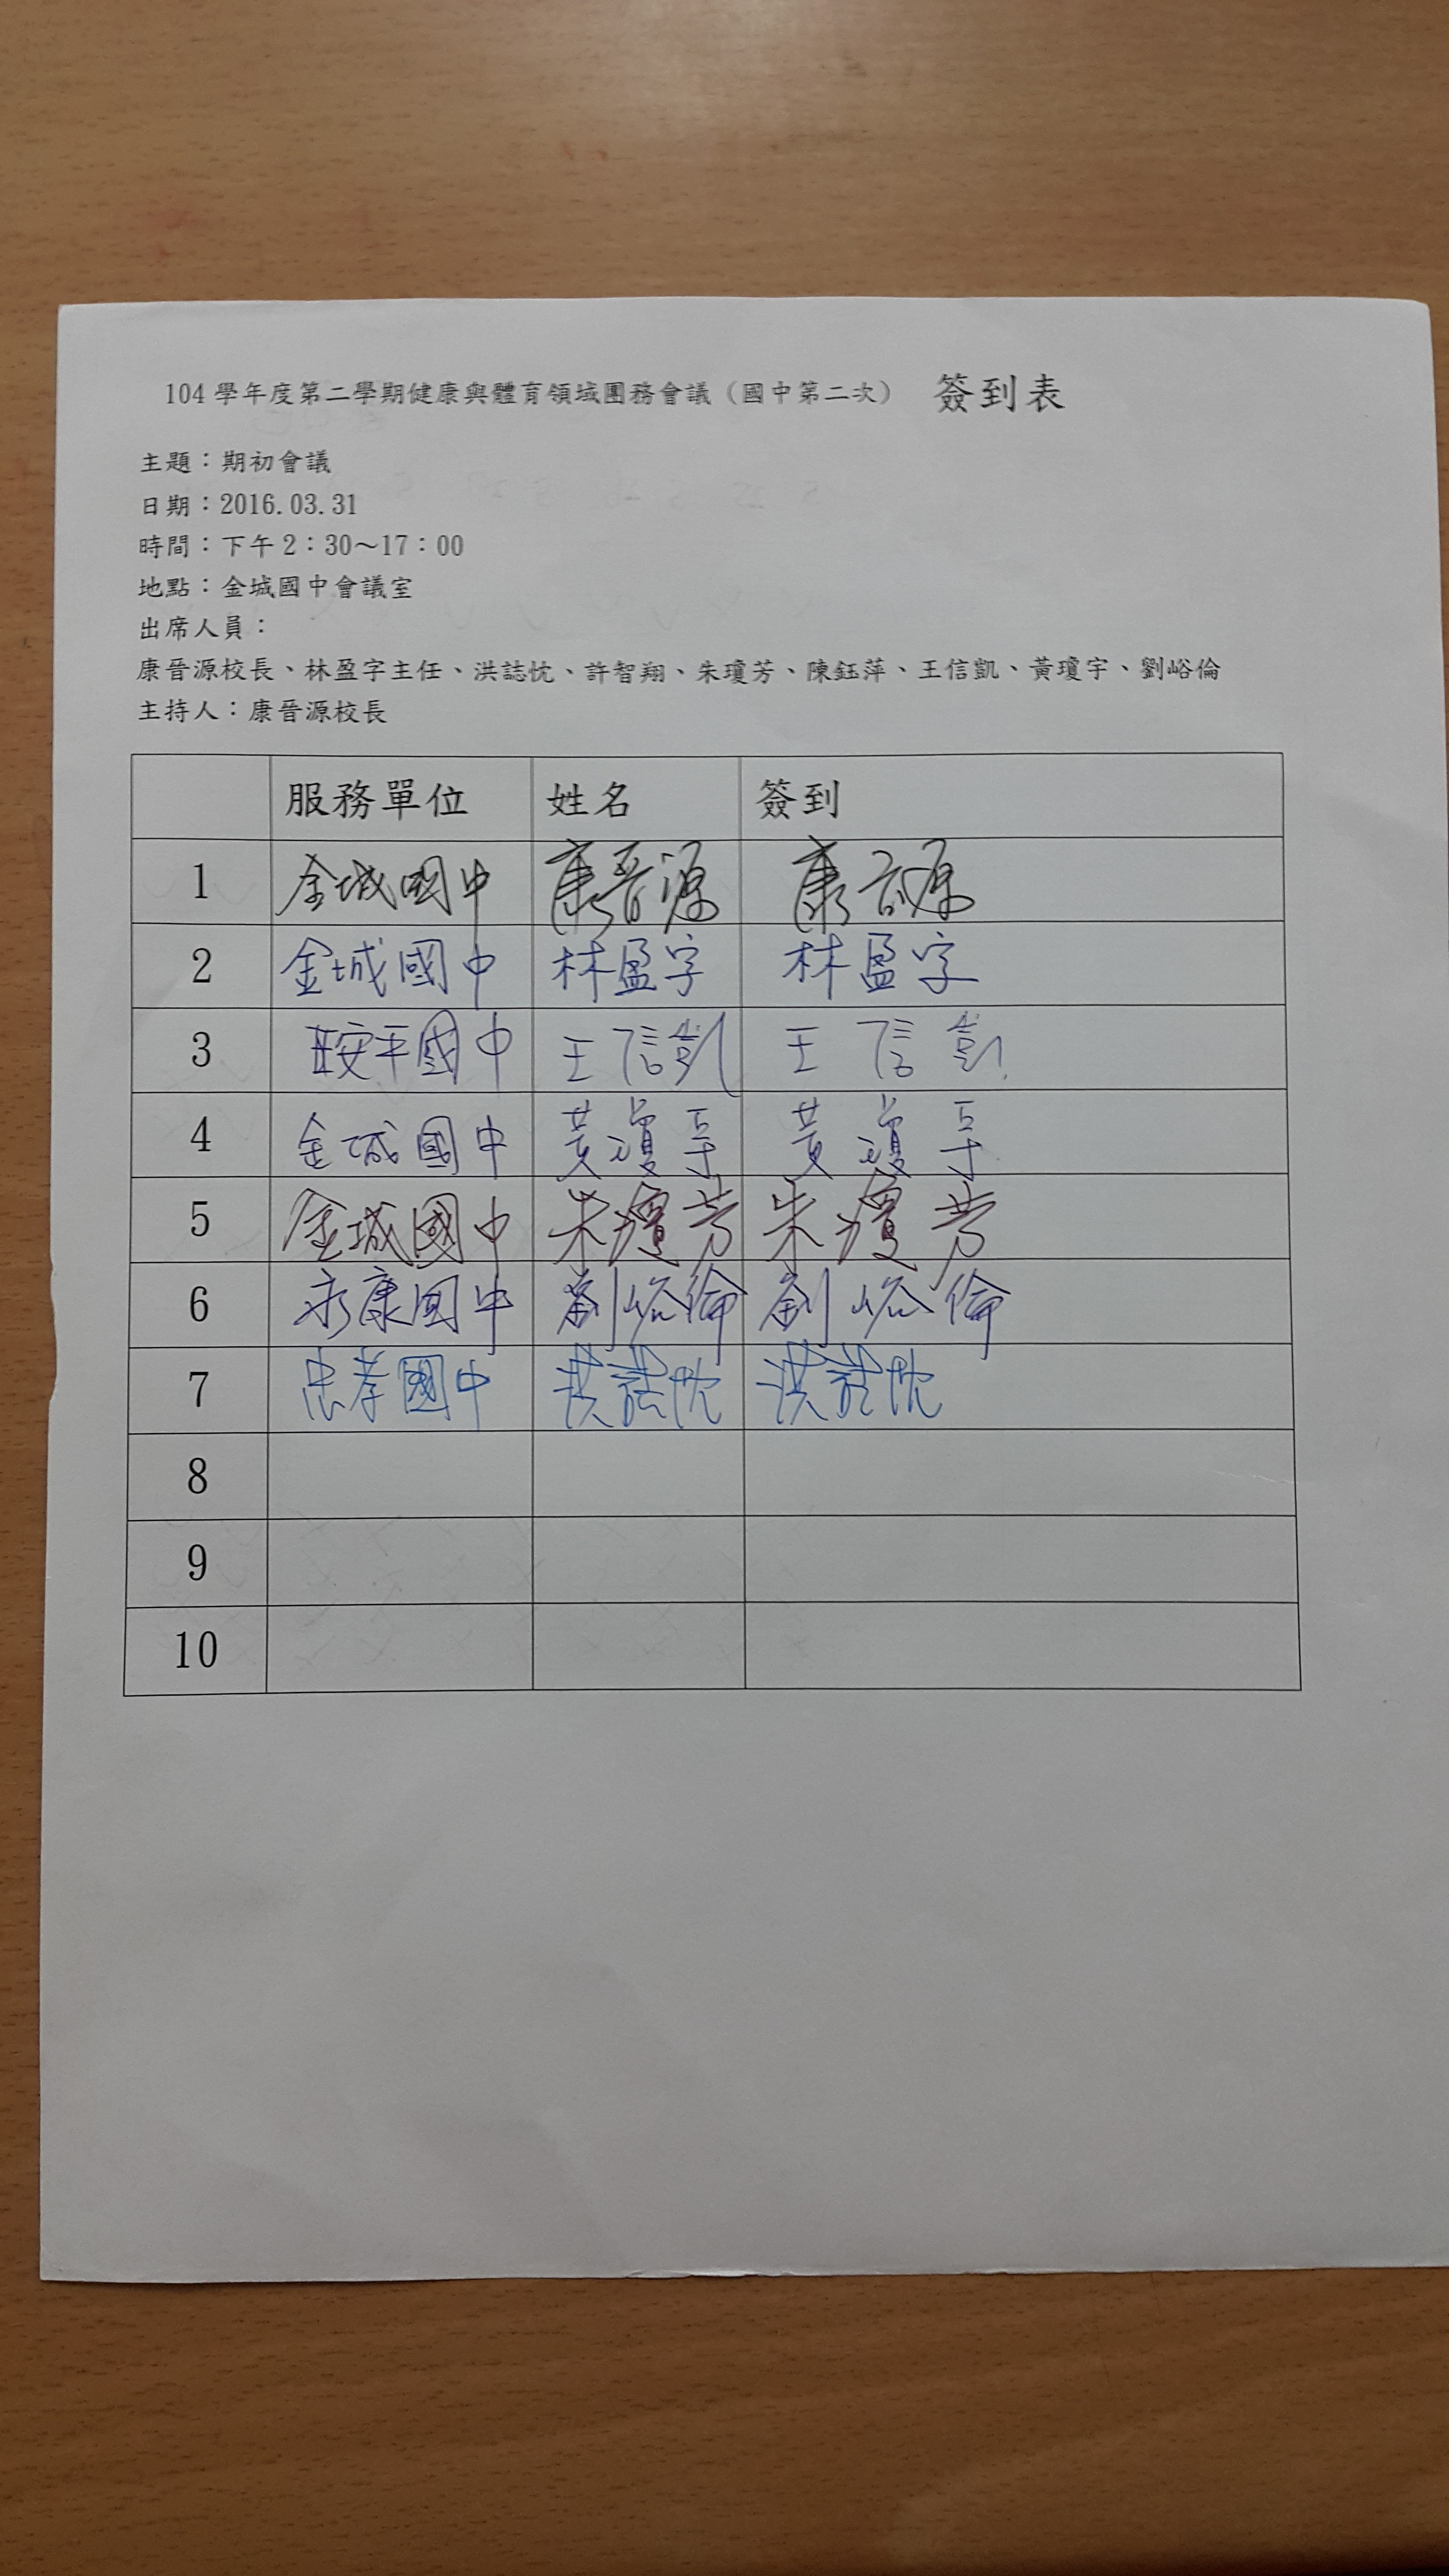 104 學年度第二學期健康與體育領域團務會議（國中第二次） 簽到表
主題：期初會議
日期：2016.03.31
時間：下午 2：30～17：00
地點：金城國中會議室
出席人員：
康晉源校長、林盈字主任、洪誌忱、許智翔、朱瓊芳、陳鈺萍、王信凱、黃瓊宇、劉峪倫
主持人：康晉源校長
服務單位 姓名 簽到
1 金城國中 康晉源 康晉源
2 金城國中 林盈字 林盈字
3 安平國中 王信凱 王信凱
4 金城國中 黃瓊宇 黃瓊宇
5 金城國中 朱瓊芳 朱瓊芳
6 永康國中 劉峪倫 劉峪倫
7 忠孝國中 洪誌忱 洪誌忱
8
9
10